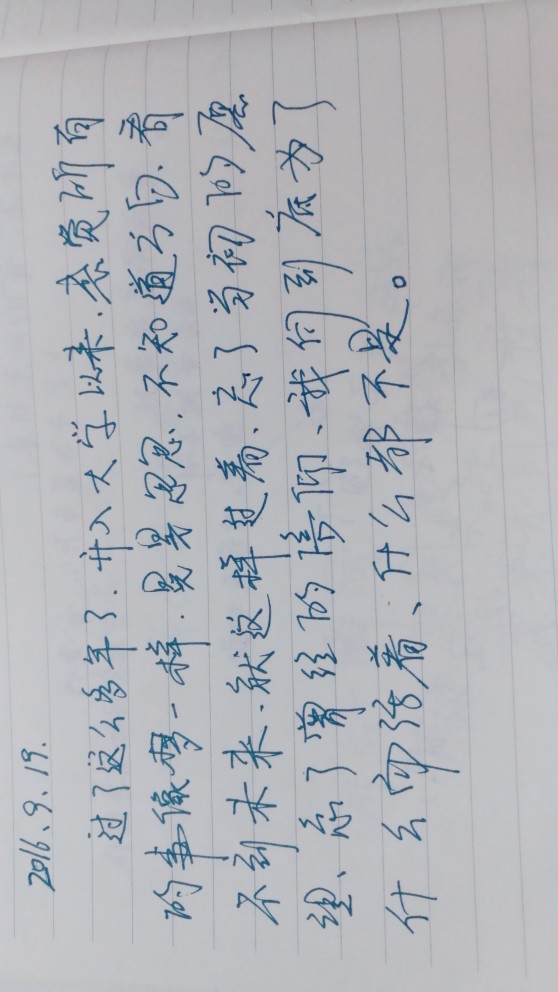 2016.9.19.
过了这么多年了.升入大学以来.感觉所有
的事像梦一样.晃晃忽忽.不知道方向.看
不到未来.就这样过着.忘了当初的愿
望、忘了曾经的信仰、我们到底为了
什么而活着、什么都不是。